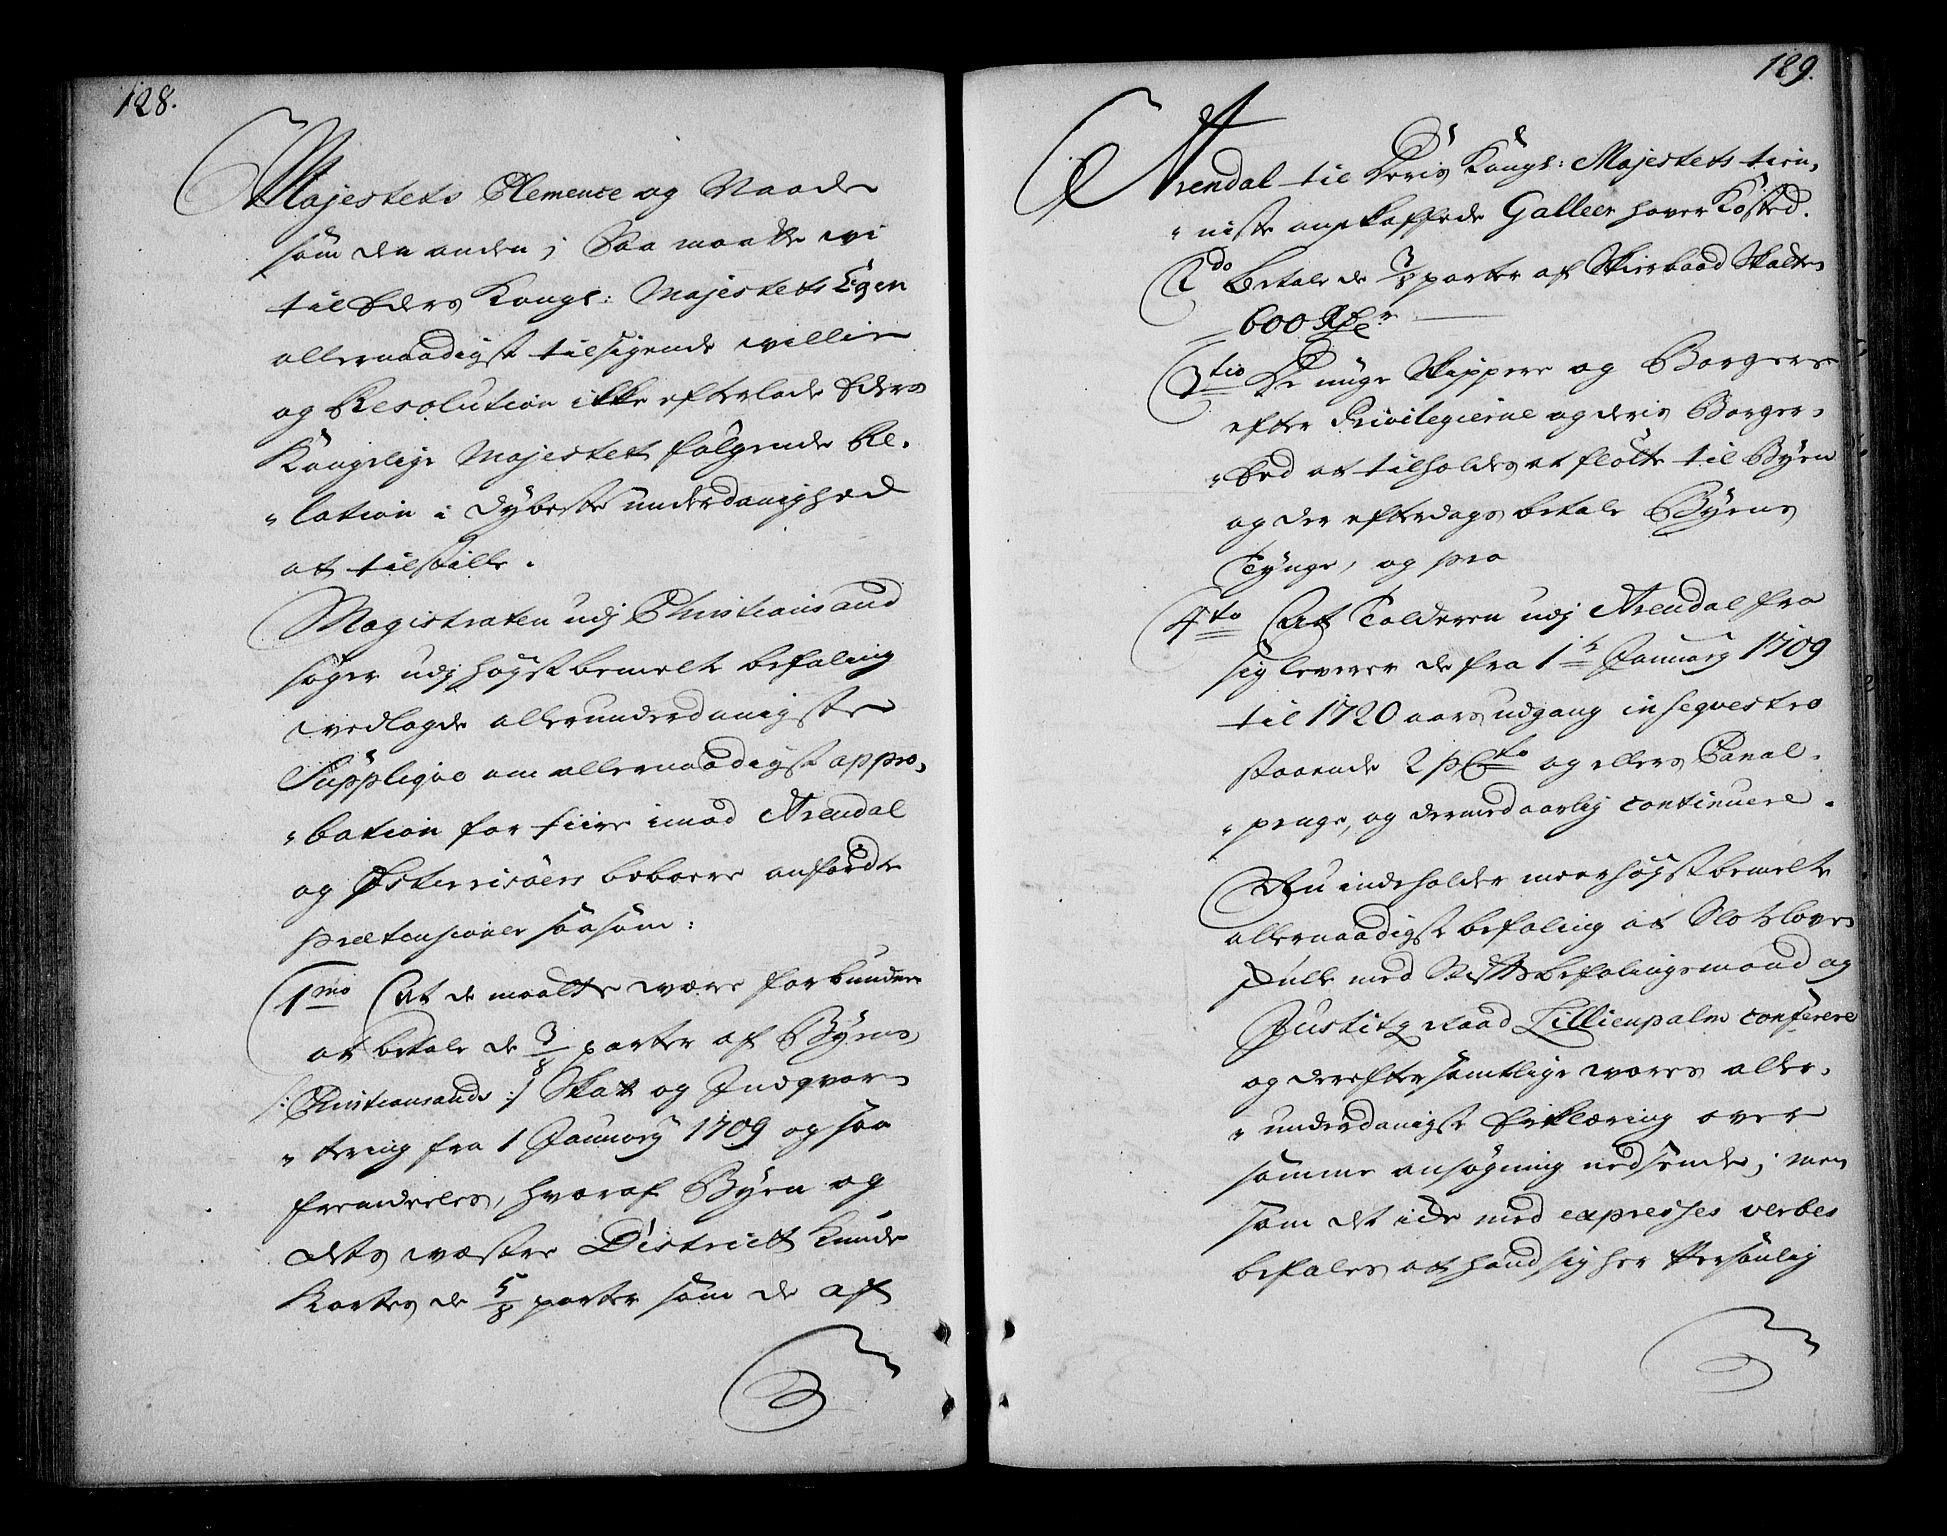 128.
Majestets Clemence og Naade
som den anden; Saa maatte wi
til Eders Kongl: Majestets Egen
allernaadigst tilsigende willie
og Resolution ikke efterlade Eders
Kongelige Majestet følgende Re-
"lation i dybeste underdanighed
at tilstille.
Magistraten udj Christiansand
søger udj høgstbemelte befaling
vedlagde allerunderdanigste
Supplique om allernaadigst appro-
"bation for fiire imod Arendal
og Østerrisöers beboere anförte
prætensioner saasom:
1mo At de maatte være forbundne
at betale de 3/8 parter af Byens
/: Christiansands :/ Skat og Indqvar-
"tering fra 1 January 1709 og saa
fremdeeles, hvoraf Byen og
dets wæstre District kunde
kortes de 5/8 parter som de af
129.
Arendal til Deris Kongl: Majestets tien-
"niste anskaffede Galleer hawer kosted.
2do Betale de 3/8 parter af Skierbaad Skatten
600 Rdr
3tio De unge Skippere og Borgere
efter Privilegierne og deris Borger-
"Eed at tilholdes at flötte til Byen
og der efterdags betale Byens
Tynge, og pro
4to At Tolderen udj Arendal fra
sig leverer de fra 1te January 1709
til 1720 aars udgang in seqvestro
staaende 2 pCto og ellers Canal-
"penge, og dermed aarlig continuere.
Nu indeholder meerhögstbemelte
allernaadigst befaling at Slotslowen
skulle med Stiftsbefalingsmand og
Justitz Raad Lillienpalm conferere
og derefter samtlige wores aller-
"underdanigst Erklæring over
samme ansøgning nedsende; men
som det icke med expresses verbes
befales at hand sig her Persönlig